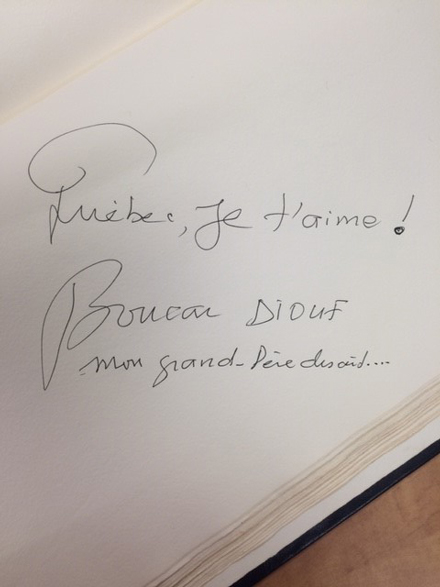 Québec, je t'aime !
Boucar DIOUF
mon grand-Père disait....